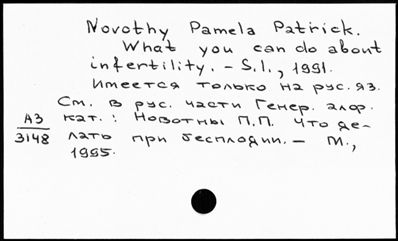 Novothy Pamela Patrick.
What you can do about
infertility. - S.l., 1991.
Имеется только на рус. яз.
См. в рус. части Генер. алф.
АЗ кат.: Новотны П.П. Что де-
3148 лать при бесплодии. - М.,
1995.